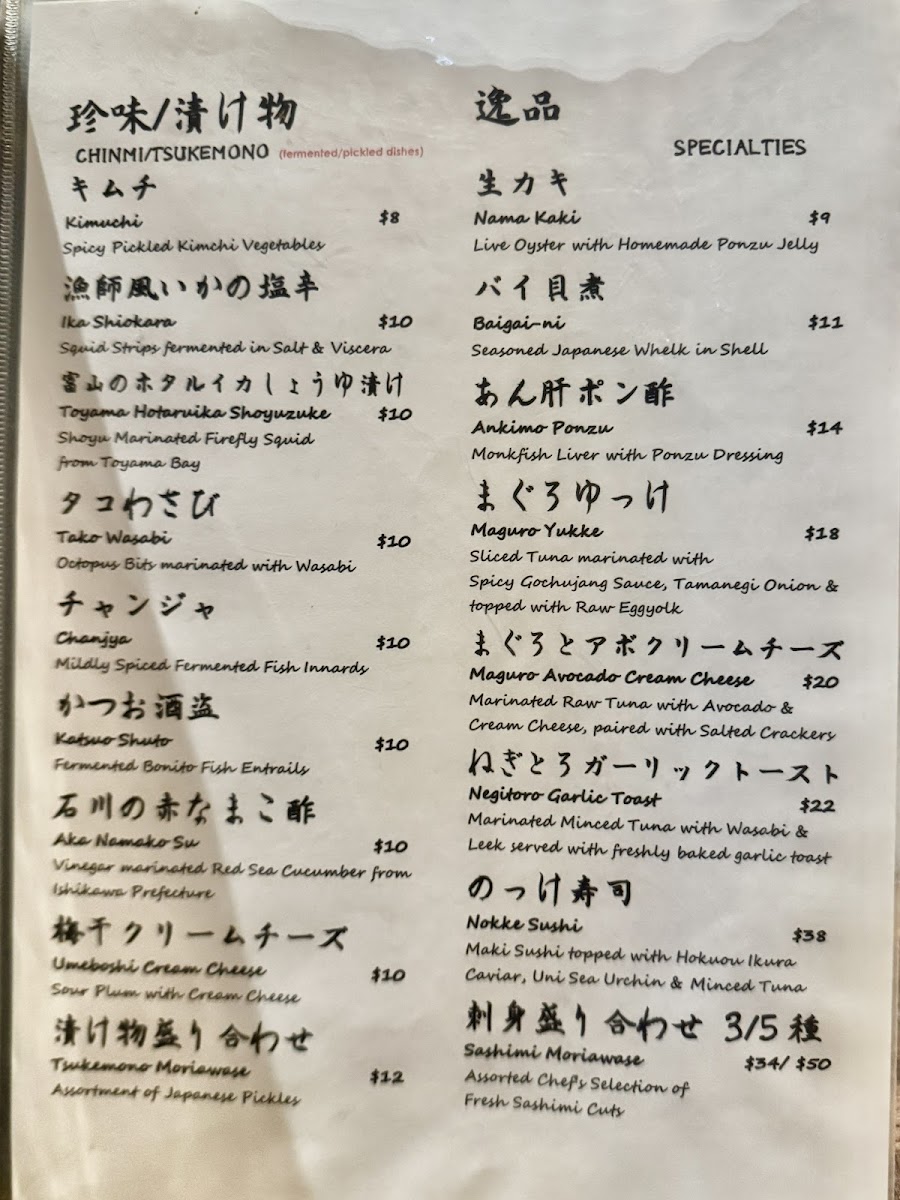 珍味/漬け物
CHINMI/TSUKEMONO (fermented/pickled dishes)
キムチ
Kimuchi $8
Spicy Pickled Kimchi Vegetables
漁師風いかの塩辛
Ika Shiokara $10
Squid Strips fermented in Salt & Viscera
富山のホタルイカしょうゆ漬け
Toyama Hotaruika Shoyuzuke $10
Shoyu Marinated Firefly Squid
from Toyama Bay
タコわさび
Tako Wasabi $10
Octopus Bits marinated with Wasabi
チャンジャ
Chanjya $10
Mildly Spiced Fermented Fish Innards
かつお酒盗
Katsuo Shuto $10
Fermented Bonito Fish Entrails
石川の赤なまこ酢
Aka Namako Su $10
Vinegar marinated Red Sea Cucumber from
Ishikawa Prefecture
梅干クリームチーズ
Umeboshi Cream Cheese $10
Sour Plum with Cream Cheese
漬け物盛り合わせ
Tsukemono Moriawase $12
Assortment of Japanese Pickles
逸品
SPECIALTIES
生カキ
Nama Kaki $9
Live Oyster with Homemade Ponzu Jelly
バイ貝煮
Baigai-ni $11
Seasoned Japanese Whelk in Shell
あん肝ポン酢
Ankimo Ponzu $14
Monkfish Liver with Ponzu Dressing
まぐろゆっけ
Maguro Yukke $18
Sliced Tuna marinated with
Spicy Gochujang Sauce, Tamanegi Onion &
topped with Raw Eggyolk
まぐろとアボクリームチーズ
Maguro Avocado Cream Cheese $20
Marinated Raw Tuna with Avocado &
Cream Cheese, paired with Salted Crackers
ねぎとろガーリックトースト
Negitoro Garlic Toast $22
Marinated Minced Tuna with Wasabi &
Leek served with freshly baked garlic toast
のっけ寿司
Nokke Sushi $38
Maki Sushi topped with Hokuou Ikura
Caviar, Uni Sea Urchin & Minced Tuna
刺身盛り合わせ 3/5種
Sashimi Moriawase $34/ $50
Assorted Chef's Selection of
Fresh Sashimi Cuts